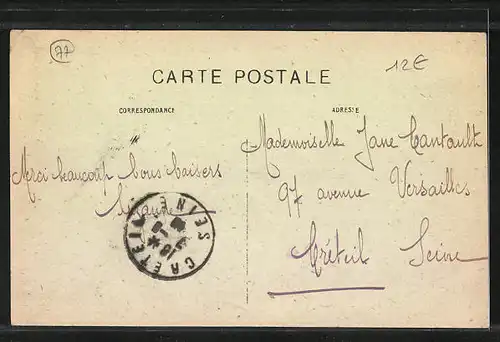 77
12€
CARTE POSTALE
CORRESPONDANCE
ADRESSE
Merci beaucoup bons baisers
Mademoiselle Jane Cantault
97 avenue Versailles
Créteil Seine
CRETEIL SEINE